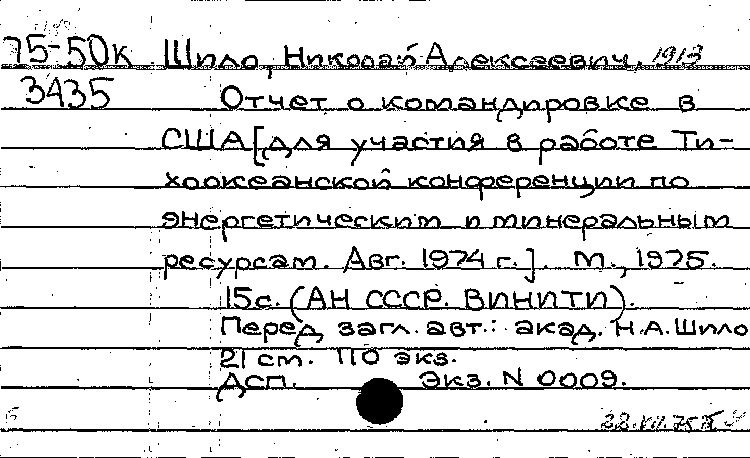 75-50к Шило, Николай Алексеевич, 1913
3435 Отчет о командировке в
США [для участия в работе Ти-
хоокеанской конференции по
энергетическим и минеральным
ресурсам. Авг. 1974 г.]. М., 1975.
15с. (АН СССР. ВИНИТИ).
Перед загл. авт.: акад. Н.А.Шило
21 см. 110 экз.
ДСП. Экз. N 0009.